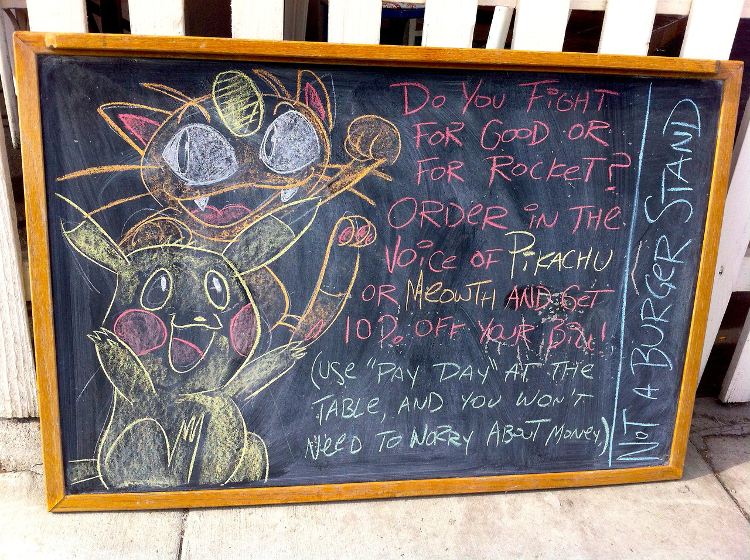 Do You FiGHT
FOR GOOD OR
FOR ROCKET?
ORDER iN THE
VOiCE OF PiKACHU
OR MEOWTH AND GET
10% OFF YOUR BILL!
(USE "PAY DAY" AT THE
TABLE, AND YOU WON'T
NEED TO WORRY ABOUT MONEY)
NOT A BURGER STAND